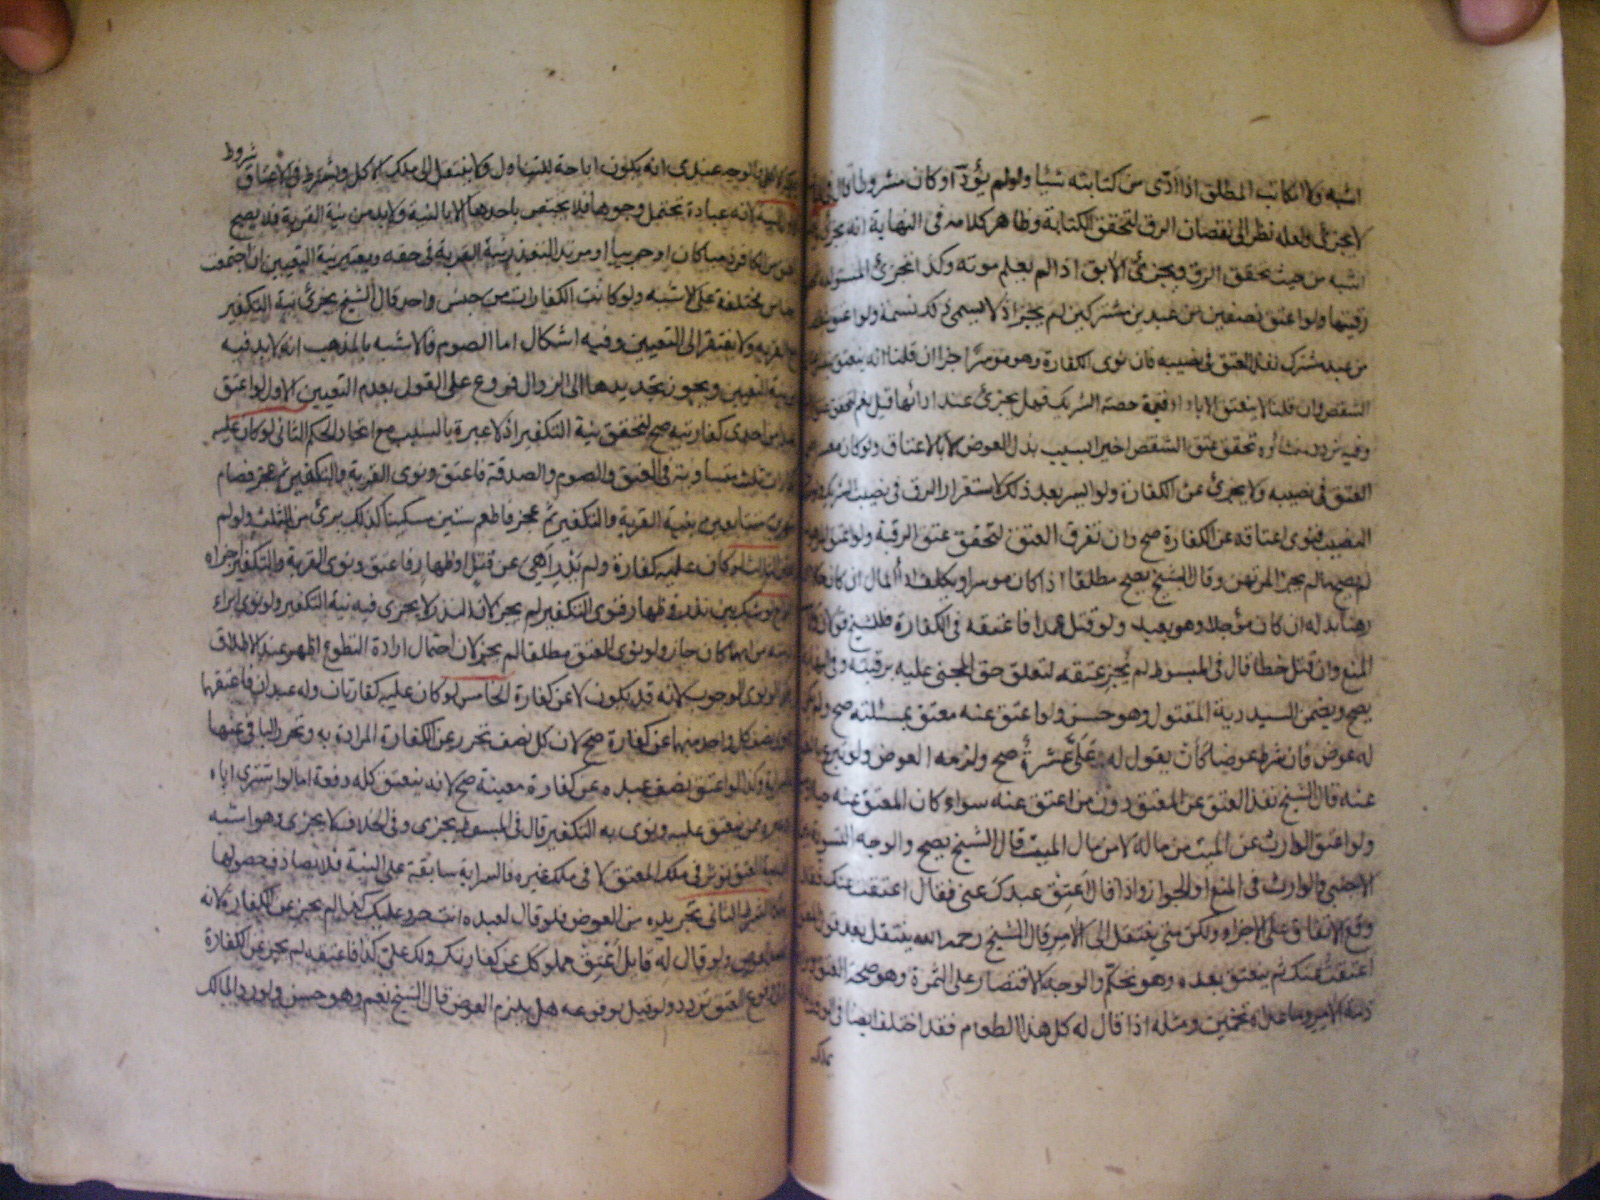 اشبه ولا المكاتب المطلق اذا ادّى من كتابته شيئا ولو لم يؤدّ او كان مشروطا قال في
لا يجزئ ولعله نظر الى نقصان الرق لتحقق الكتابة وظاهر كلامه في النهاية انه يجزئ
اشبه من حيث تحقق الرق ويجزئ الابق اذا لم يعلم موته وكذا تجزئ المستولدة
رقيتها ولو اعتق نصفين من عبدين مشتركين لم يجز اذ لا يسمى ذلك نسمة ولو اعتق
من عبد مشترك نفذ العتق في نصيبه فان نوى الكفارة وهو موسر اجزأ ان قلنا انه ينعتق
الشقص وان قلنا لا ينعتق الا باداء قيمة حصة الشريك فهل يجزئ عند ادائها قيل نعم لتحقق
وفيه تردد منشاؤه تحقق عتق الشقص اخيرا بسبب بذل العوض لا بالاعتاق ولو كان معسرا
العتق في نصيبه ولا يجزئ عن الكفارة ولو ايسر بعد ذلك لاستقرار الرق في نصيب الشريك
النصيب فنوى اعتاقه عن الكفارة صح وان تفرق العتق لتحقق عتق الرقبة ولو اعتق
لم يصح ما لم يجز المرتهن وقال الشيخ يصح مطلقا اذا كان موسرا ويكلف اداء المال ان كان
رهنا بدله ان كان مؤجلا وهو بعيد ولو قتل عمدا فاعتقه في الكفارة فللشيخ قولان
المنع وان قتل خطا قال في المبسوط لم يجز عتقه لتعلق حق المجني عليه برقبته وفي النهاية
يصح ويضمن السيد دية المقتول وهو حسن ولو اعتق عنه معتق بمسئلته صح ولم
له عوض فان شرط عوضا كأن يقول له وعليّ عشرة صح ولزمه العوض ولو تبرع
عنه قال الشيخ نفذ العتق عن المعتق دون من اعتق عنه سواء كان المعتق عنه
ولو اعتق الوارث عن الميت من ماله لا من مال الميت قال الشيخ يصح والوجه التسوية
الاجنبي والوارث في المنع او الجواز واذا قال اعتق عبدك عني فقال اعتقت عنك فقد
وقع الاتفاق على الاجزاء ولكن متى ينتقل الى الامر قال الشيخ رحمه الله ينتقل بعد قول
اعتقت عنك ثم ينعتق بعده وهو تحكم والوجه الاقتصار على الثمرة وهو صحة العتق
ذمة الامر وما عداه تخمين ومثله اذا قال له كل هذا الطعام فقد اختلف ايضا في
يملكه
شروط
والوجه عندي انه يكون اباحة للتناول ولا ينتقل الى ملك الاكل ويشترط في الاعتاق
النية لانه عبادة تحتمل وجوها فلا يختص باحدها الا بالنية ولا بد من نية القربة فلا يصح
العتق من الكافر ذميا كان او حربيا او مرتدا لتعذر نية القربة في حقه ويعتبر نية التعيين ان اجتمعت
اجناس مختلفة على الاشبه ولو كانت الكفارات من جنس واحد قال الشيخ يجزئ نية التكفير
مع القربة ولا يفتقر الى التعيين وفيه اشكال اما الصوم فالاشبه بالمذهب انه لا بد فيه
من نية التعيين ويجوز تجديدها الى الزوال فروع على القول بعدم التعيين الاول لو اعتق
عبدا من احدى كفارتيه صح لتحقق نية التكفير اذ لا عبرة بالسبب مع اتحاد الحكم الثاني لو كان عليه
كفارات ثلث متساوية في العتق والصوم والصدقة فاعتق ونوى القربة والتكفير ثم عجز فصام
شهرين متتابعين بنية القربة والتكفير ثم عجز فاطعم ستين مسكينا كذلك برئ من الثلث ولو لم
الثالث لو كان عليه كفارة ولم يدر اهي عن قتل او ظهار فاعتق ونوى القربة والتكفير اجزاه
الرابع لو شك بين نذر وظهار فنوى التكفير لم يجز لان النذر لا يجزي فيه نية التكفير ولو نوى ابراء
ذمته من ايهما كان جاز ولو نوى العتق مطلقا لم يجز لان احتمال ارادة التطوع اظهر عند الاطلاق
وكذا لو نوى الوجوب لانه قد يكون لا عن كفارة الخامس لو كان عليه كفارتان وله عبدان فاعتقهما
ونوى نصف كل واحد منهما عن كفارة صح لان كل نصف تحرر عن الكفارة المرادة به وتحرر الباقي عنها
بالسراية وكذا لو اعتق نصف عبده عن كفارة معينة صح لانه ينعتق كله دفعة اما لو اشترى اباه
او غيره ممن ينعتق عليه ونوى به التكفير قال في المبسوط يجزي وفي الخلاف لا يجزي وهو اشبه
لان نية العتق تؤثر في ملك المعتق لا في ملك غيره فالسراية سابقة على النية فلا يصادف حصولها
ملكا الشرط الثاني تجريده من العوض فلو قال لعبده انت حر وعليك كذا لم يجز عن الكفارة لانه
قصد العوض ولو قال له قايل اعتق مملوكك عن كفارتك ولك علي كذا فاعتقه لم يجز عن الكفارة
وفي وقوع العتق تردد ولو قيل بوقوعه هل يلزم العوض قال الشيخ نعم وهو حسن ولو رد المالك